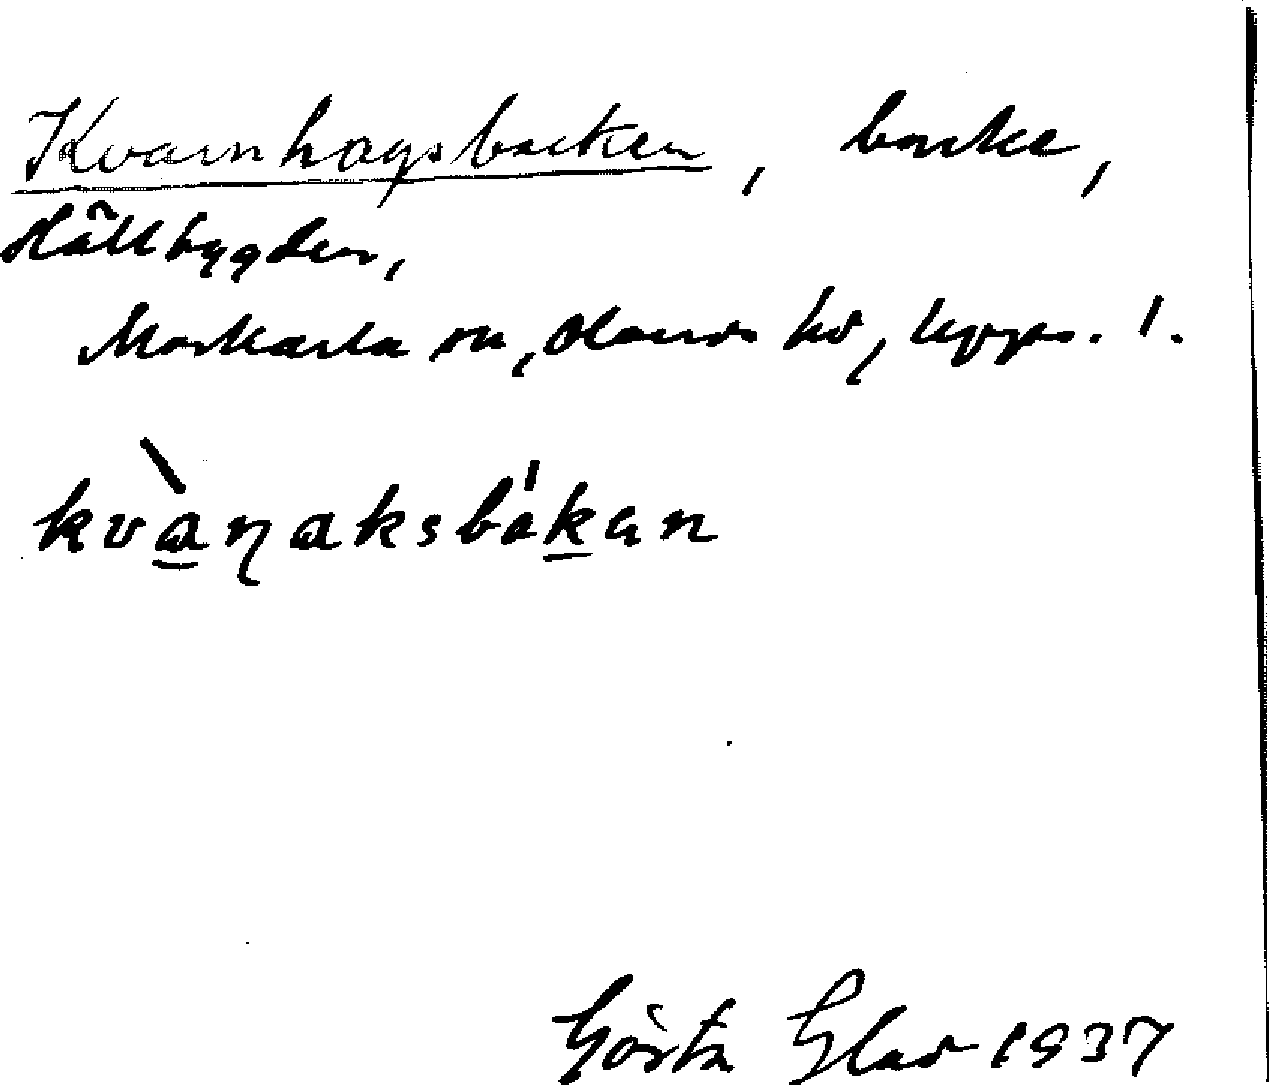 Kvarnhagsbacken, backe,
Hållbygden,
Morkarla sn, Olands hd, Upps. l.
kvàɳaksbákan
Gösta Glad 1937